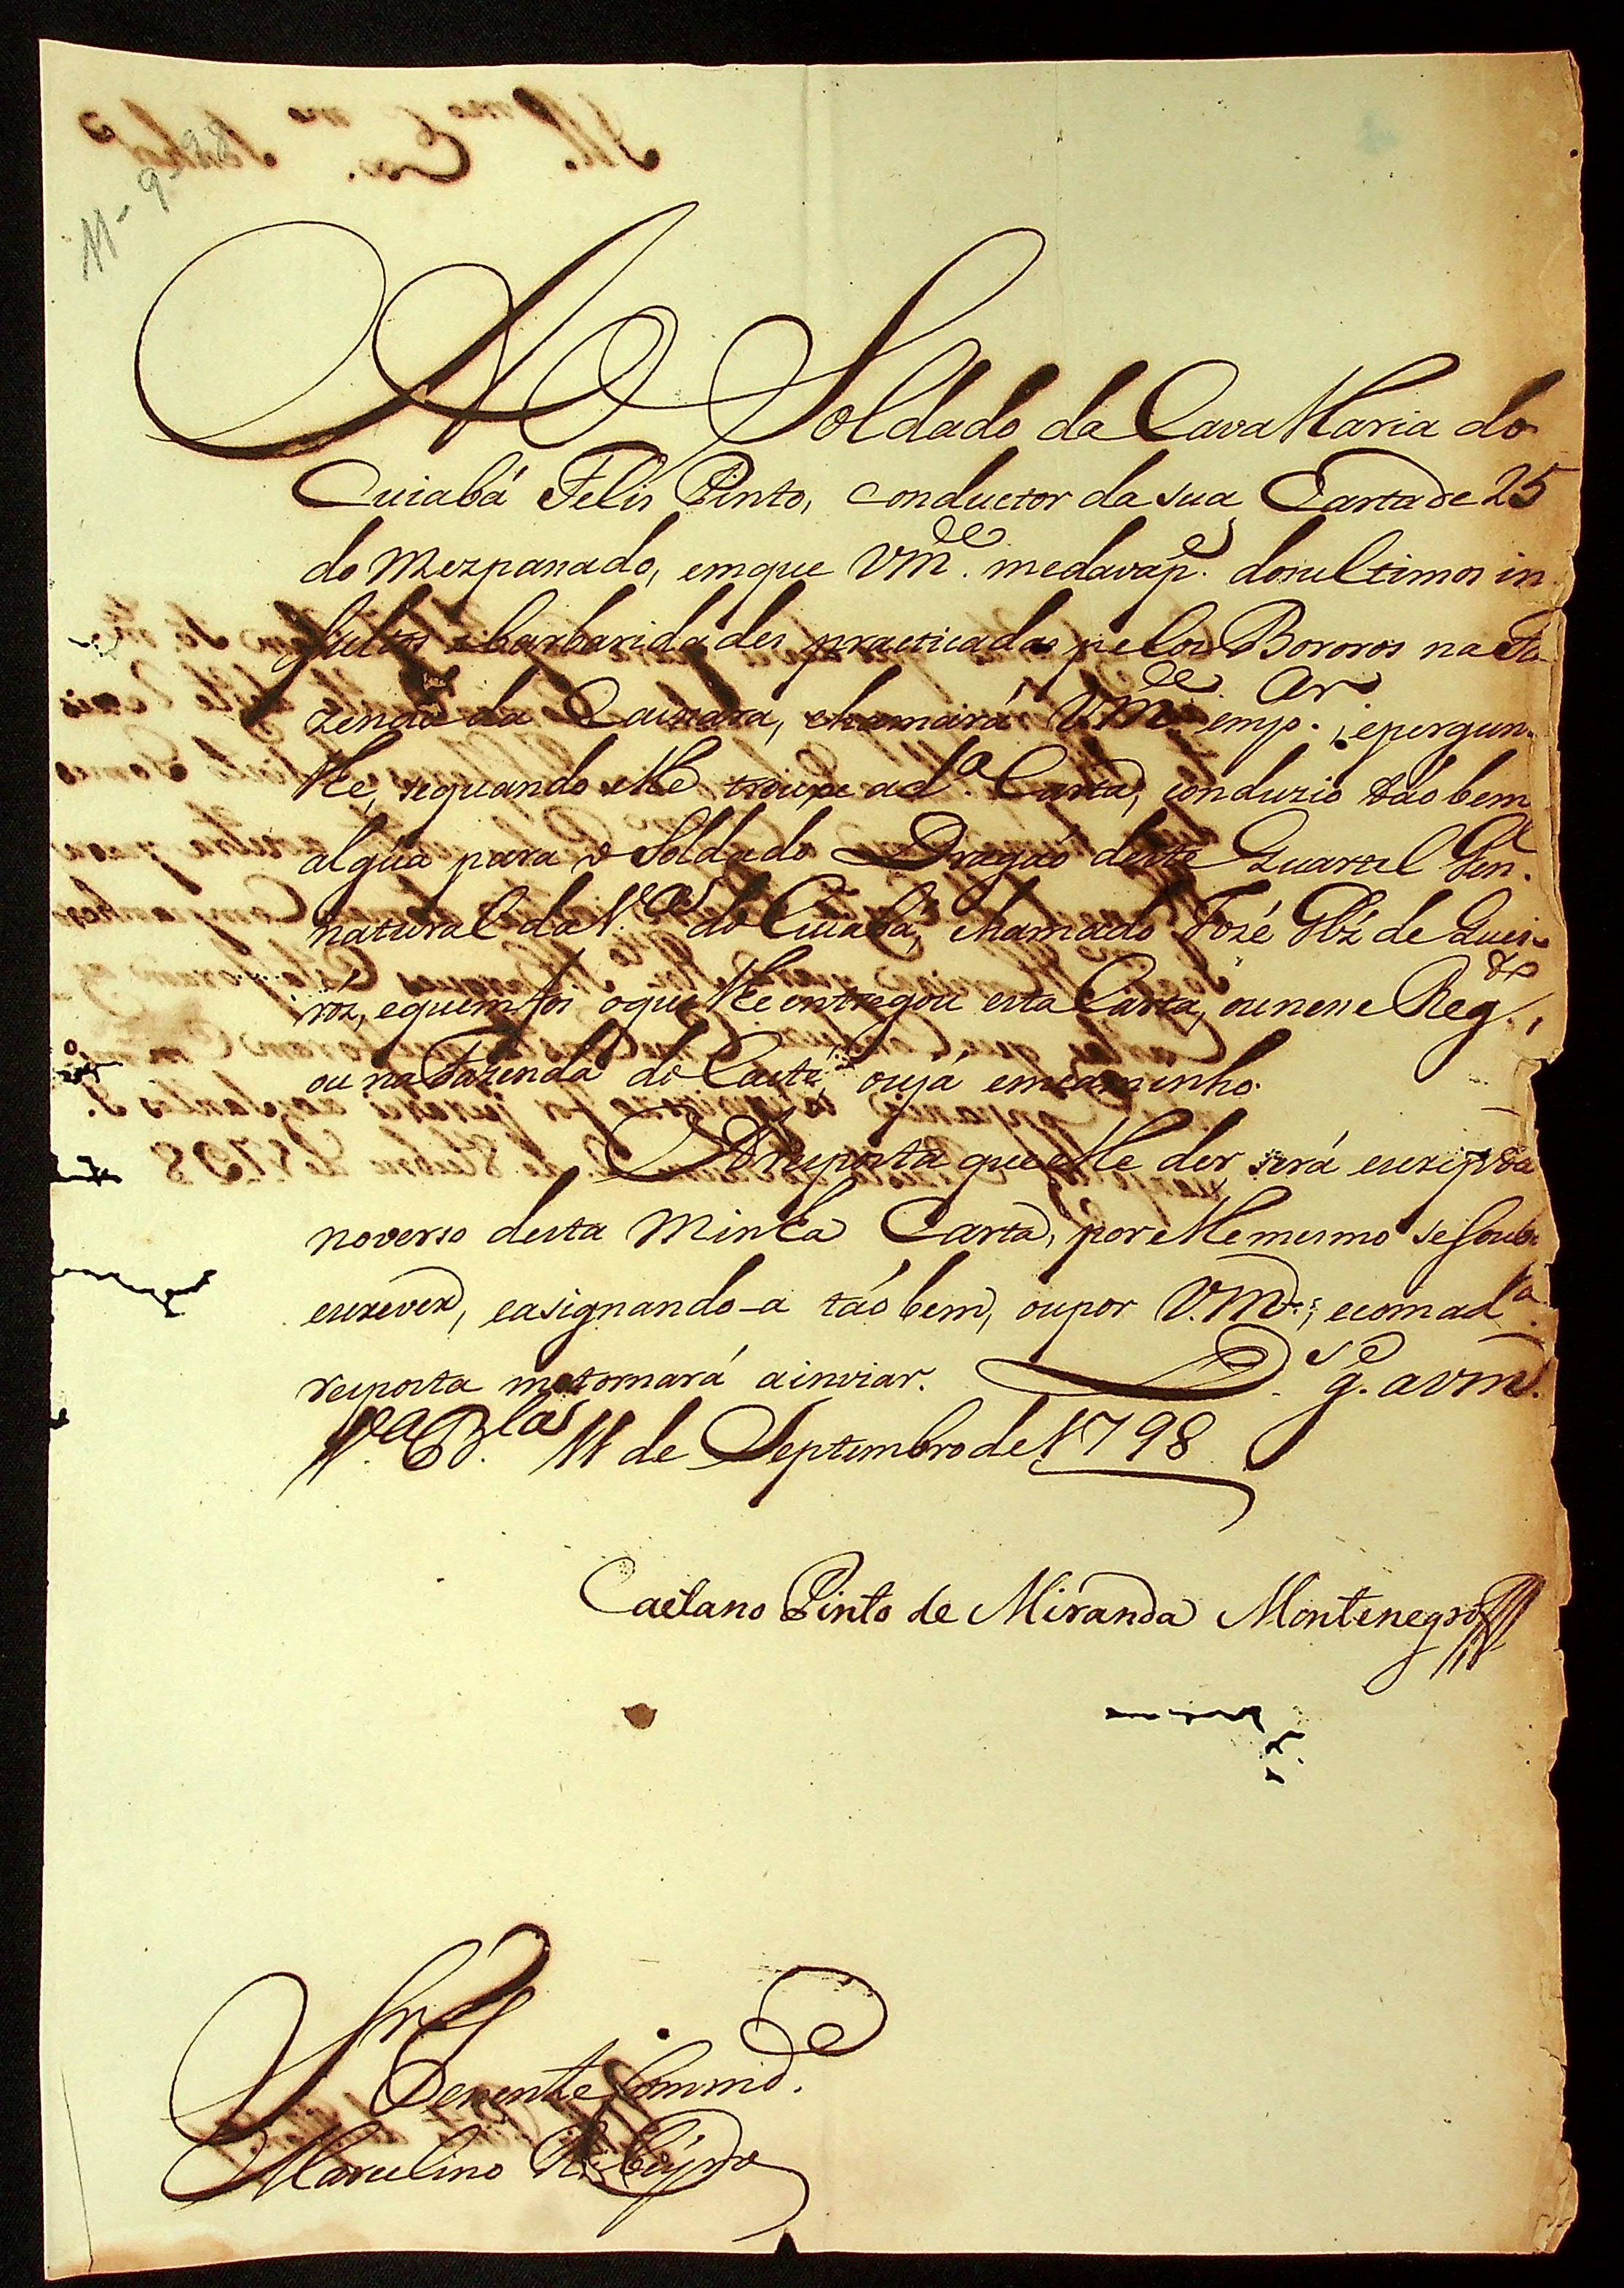 11-9-98
Ao Soldado da Cavallaria do
Cuiabá Felis Pinto, conductor da sua Carta de 25
do Mez panado, emque Vm.ce me dava p.e dos ultimos in
sultos e barbaridades practicadas pelos Bororos na Fa
zenda da Caissara, chamará V.M.ce emp.ar, epergun
lhe, sequando elle trouxe ad.a Carta, conduzio táo bem
algúa para o Soldado Dragáo deste Quartel Gen.l
natural da V.a do Cuiabá, chamado Jozé Glz' de Quei-
róz, equem foi oque lhe entregou esta Carta, ou nesse Reg.to,
ou na Fazenda do Caité, ou já em caminho.
A resposta que elle der será escripta
noverso desta minha Carta, por elle mesmo se soub.
escrever, easignando-a táo bem, oupor V.M.ce; ecom ad.a
resposta ma tornará ainviar. D.s g.e avm.ce
V.a B.la 11 de Septembro de 1798
Caetano Pinto de Miranda Montenegro
Snr.
Tenente Comm.de
Marcelino Ribeyro